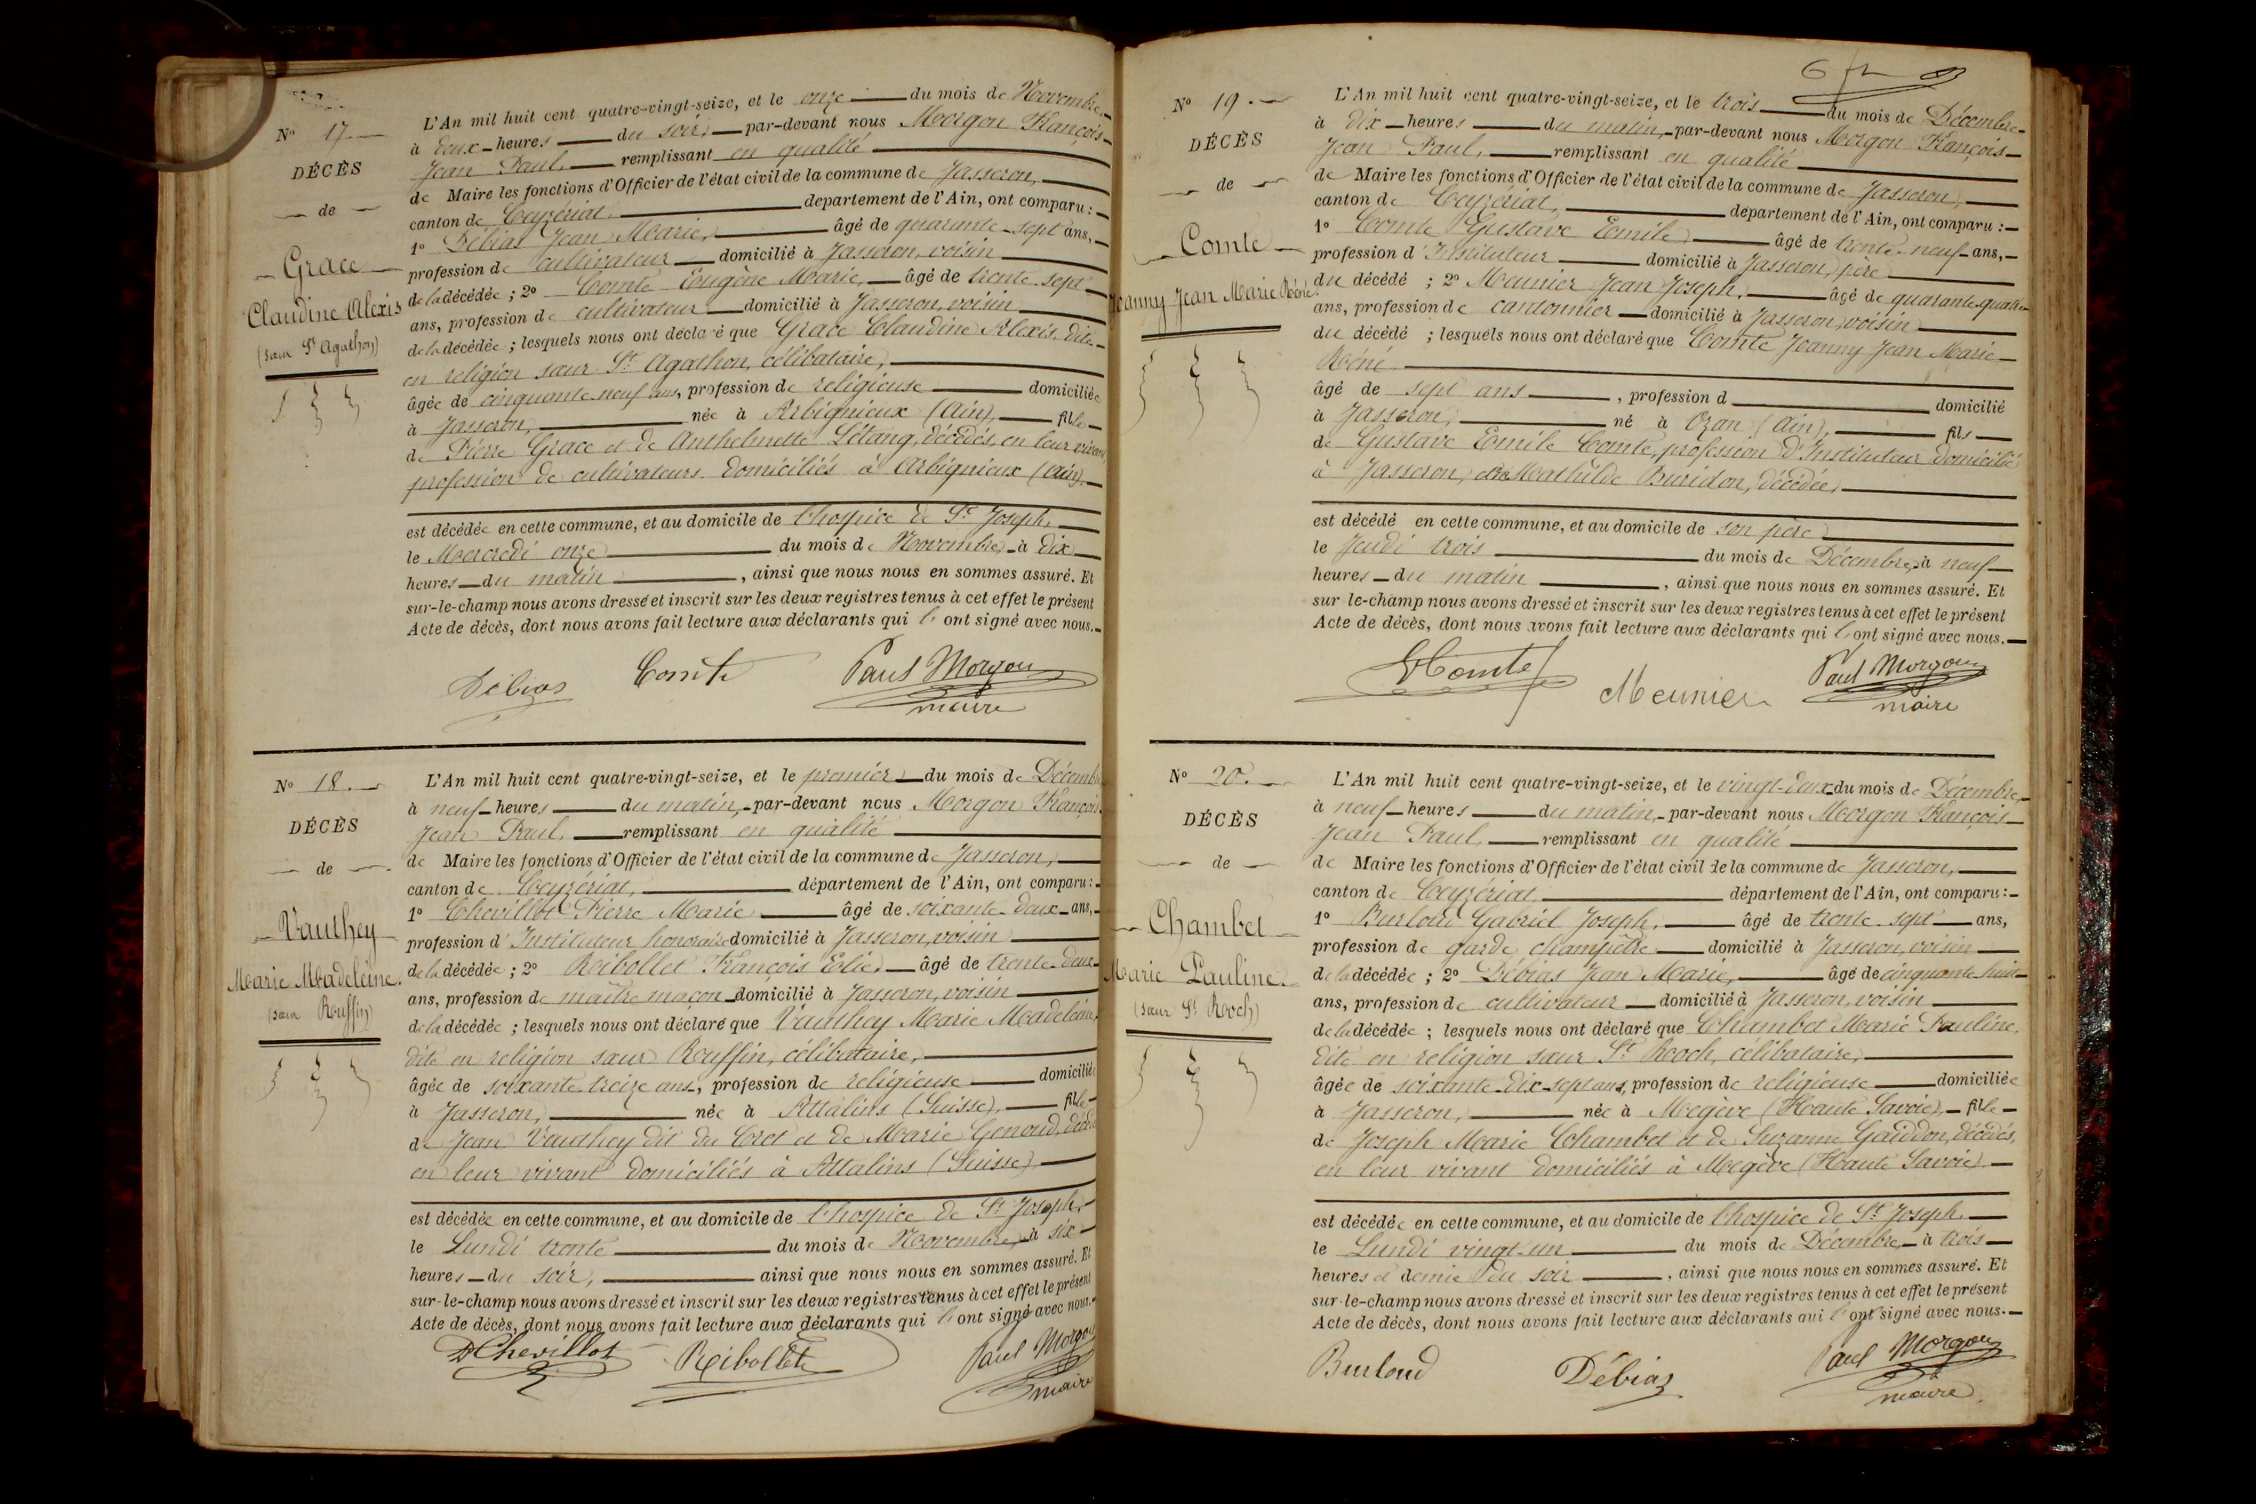 N° 17.
DÉCÈS
de
Grace
Claudine Alexis
(sœur St Agathon)
L'An mil huit cent quatre-vingt-seize, et le onze du mois de Novembre
à deux heures du soir, par-devant nous Morgon François
Jean Paul, remplissant en qualité
de Maire les fonctions d'Officier de l'état civil de la commune de Jasseron,
canton de Ceyzériat, departement de l'Ain, ont comparu :
1° Débias Jean Marie, âgé de quarante-sept ans,
profession de cultivateur domicilié à Jasseron, voisin
de la décédée ; 2° Comte Eugène Marie, âgé de trente-sept
ans, profession de cultivateur domicilié à Jasseron, voisin
de la décédée ; lesquels nous ont déclaré que Grace Claudine Alexis, dite
en religion sœur St Agathon, célibataire,
âgée de cinquante-neuf ans, profession de religieuse domiciliée
à Jasseron, née à Arbignieux (Ain), fille
de Pierre Grace et de Anthelmette Létang, décédés, en leur vivant
profession de cultivateurs domiciliés à Arbignieux (Ain).
est décédée en cette commune, et au domicile de l'hospice de St Joseph,
le Mercredi onze du mois de Novembre, à dix
heures du matin, ainsi que nous nous en sommes assuré. Et
sur-le-champ nous avons dressé et inscrit sur les deux registres tenus à cet effet le présent
Acte de décès, dont nous avons fait lecture aux déclarants qui l' ont signé avec nous.
Débias Comte Paul Morgon
maire
N° 18.
DÉCÈS
de
Vauthey
Marie Madeleine.
(sœur Rouffin)
L'An mil huit cent quatre-vingt-seize, et le premier du mois de Décemb
à neuf heures du matin, par-devant nous Morgon François
Jean Paul, remplissant en qualité
de Maire les fonctions d'Officier de l'état civil de la commune de Jasseron,
canton de Ceyzériat, département de l'Ain, ont comparu :
1° Chevillot Pierre Marie âgé de soixante-deux ans,
profession d'Instituteur honoraire domicilié à Jasseron, voisin
de la décédée ; 2° Reibollet François Elie, âgé de trente-deux
ans, profession de maître maçon domicilié à Jasseron, voisin
de la décédée ; lesquels nous ont déclaré que Vauthey Marie Madeleine,
dite en religion sœur Rouffin, célibataire,
âgée de soixante-treize ans, profession de religieuse domiciliée
à Jasseron, née à Attalins (Suisse), fille
de Jean Vauthey dit du Cret et de Marie Genoud, décédés
en leur vivant domiciliés à Attalins (Suisse)
est décédée en cette commune, et au domicile de l'hospice de St Joseph,
le Lundi trente du mois de Novembre, à six
heures du soir, ainsi que nous nous en sommes assuré. Et
sur-le-champ nous avons dressé et inscrit sur les deux registres tenus à cet effet le présent
Acte de décès, dont nous avons fait lecture aux déclarants qui l' ont signé avec nous.
Chevillot Reibollet Paul Morgon
maire
N° 19.
DÉCÈS
de
Comte
Joanny Jean Marie Réné
L'An mil huit cent quatre-vingt-seize, et le trois du mois de Décembre
à dix heures du matin, par-devant nous Morgon François
Jean Paul, remplissant en qualité
de Maire les fonctions d'Officier de l'état civil de la commune de Jasseron,
canton de Ceyzériat, département de l'Ain, ont comparu :
1° Comte Gustave Emile âgé de trente-neuf ans,
profession d'Instituteur domicilié à Jasseron, père
du décédé ; 2° Meunier Jean Joseph, âgé de quarante-quatre
ans, profession de cantonnier domicilié à Jasseron, voisin
du décédé ; lesquels nous ont déclaré que Comte Joanny Jean Marie
Réné
âgé de sept ans, profession d domicilié
à Jasseron, né à Ozan (Ain), fils
de Gustave Emile Comte, profession d'Instituteur domicilié
à Jasseron, et de Mathilde Buridon, décédée,
est décédé en cette commune, et au domicile de son père
le Jeudi trois du mois de Décembre, à neuf
heures du matin, ainsi que nous nous en sommes assuré. Et
sur le-champ nous avons dressé et inscrit sur les deux registres tenus à cet effet le présent
Acte de décès, dont nous avons fait lecture aux déclarants qui l' ont signé avec nous.
Comte Meunier Paul Morgon
maire
N° 20.
DÉCÈS
de
Chambet
Marie Pauline.
(sœur St Roch)
L'An mil huit cent quatre-vingt-seize, et le vingt-deux du mois de Décembre,
à neuf heures du matin, par-devant nous Morgon François
Jean Paul, remplissant en qualité
de Maire les fonctions d'Officier de l'état civil de la commune de Jasseron,
canton de Ceyzériat département de l'Ain, ont comparu :
1° Burloud Gabriel Joseph, âgé de trente-sept ans,
profession de garde champêtre domicilié à Jasseron, voisin
de la décédée ; 2° Débias Jean Marie, âgé de cinquante-huit
ans, profession de cultivateur domicilié à Jasseron, voisin
de la décédée ; lesquels nous ont déclaré que Chambet Marie Pauline,
dite en religion sœur St Roch, célibataire,
âgée de soixante-dix-sept ans, profession de religieuse domiciliée
à Jasseron, née à Megève (Haute Savoie), fille
de Joseph Marie Chambet et de Suzanne Gaiddon, décédés,
en leur vivant domiciliés à Megève (Haute Savoie)
est décédée en cette commune, et au domicile de l'hospice de St Joseph,
le Lundi vingt-un du mois de Décembre, à trois
heures et demie du soir, ainsi que nous nous en sommes assuré. Et
sur-le-champ nous avons dressé et inscrit sur les deux registres tenus à cet effet le présent
Acte de décès, dont nous avons fait lecture aux déclarants qui l' ont signé avec nous.
Burloud Débias Paul Morgon
maire